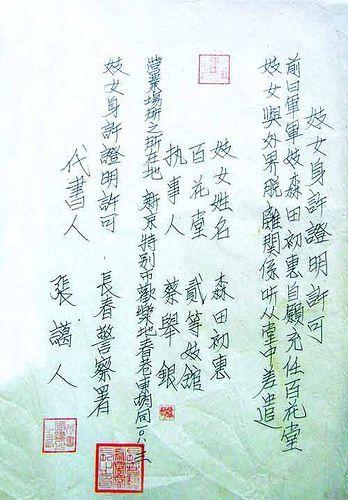 妓女身許證明許可
前日军軍妓森田初惠自願充任百花堂
妓女與外界脫離關係听从堂中差遣
妓女姓名 森田初惠
百花堂 貳等妓舘
执事人 蔡舉銀
營業場所之所在地 新京特别市歡樂地春巷東胡同一〇八三
妓女身許證明許可 長春警察署
代書人 張謁人